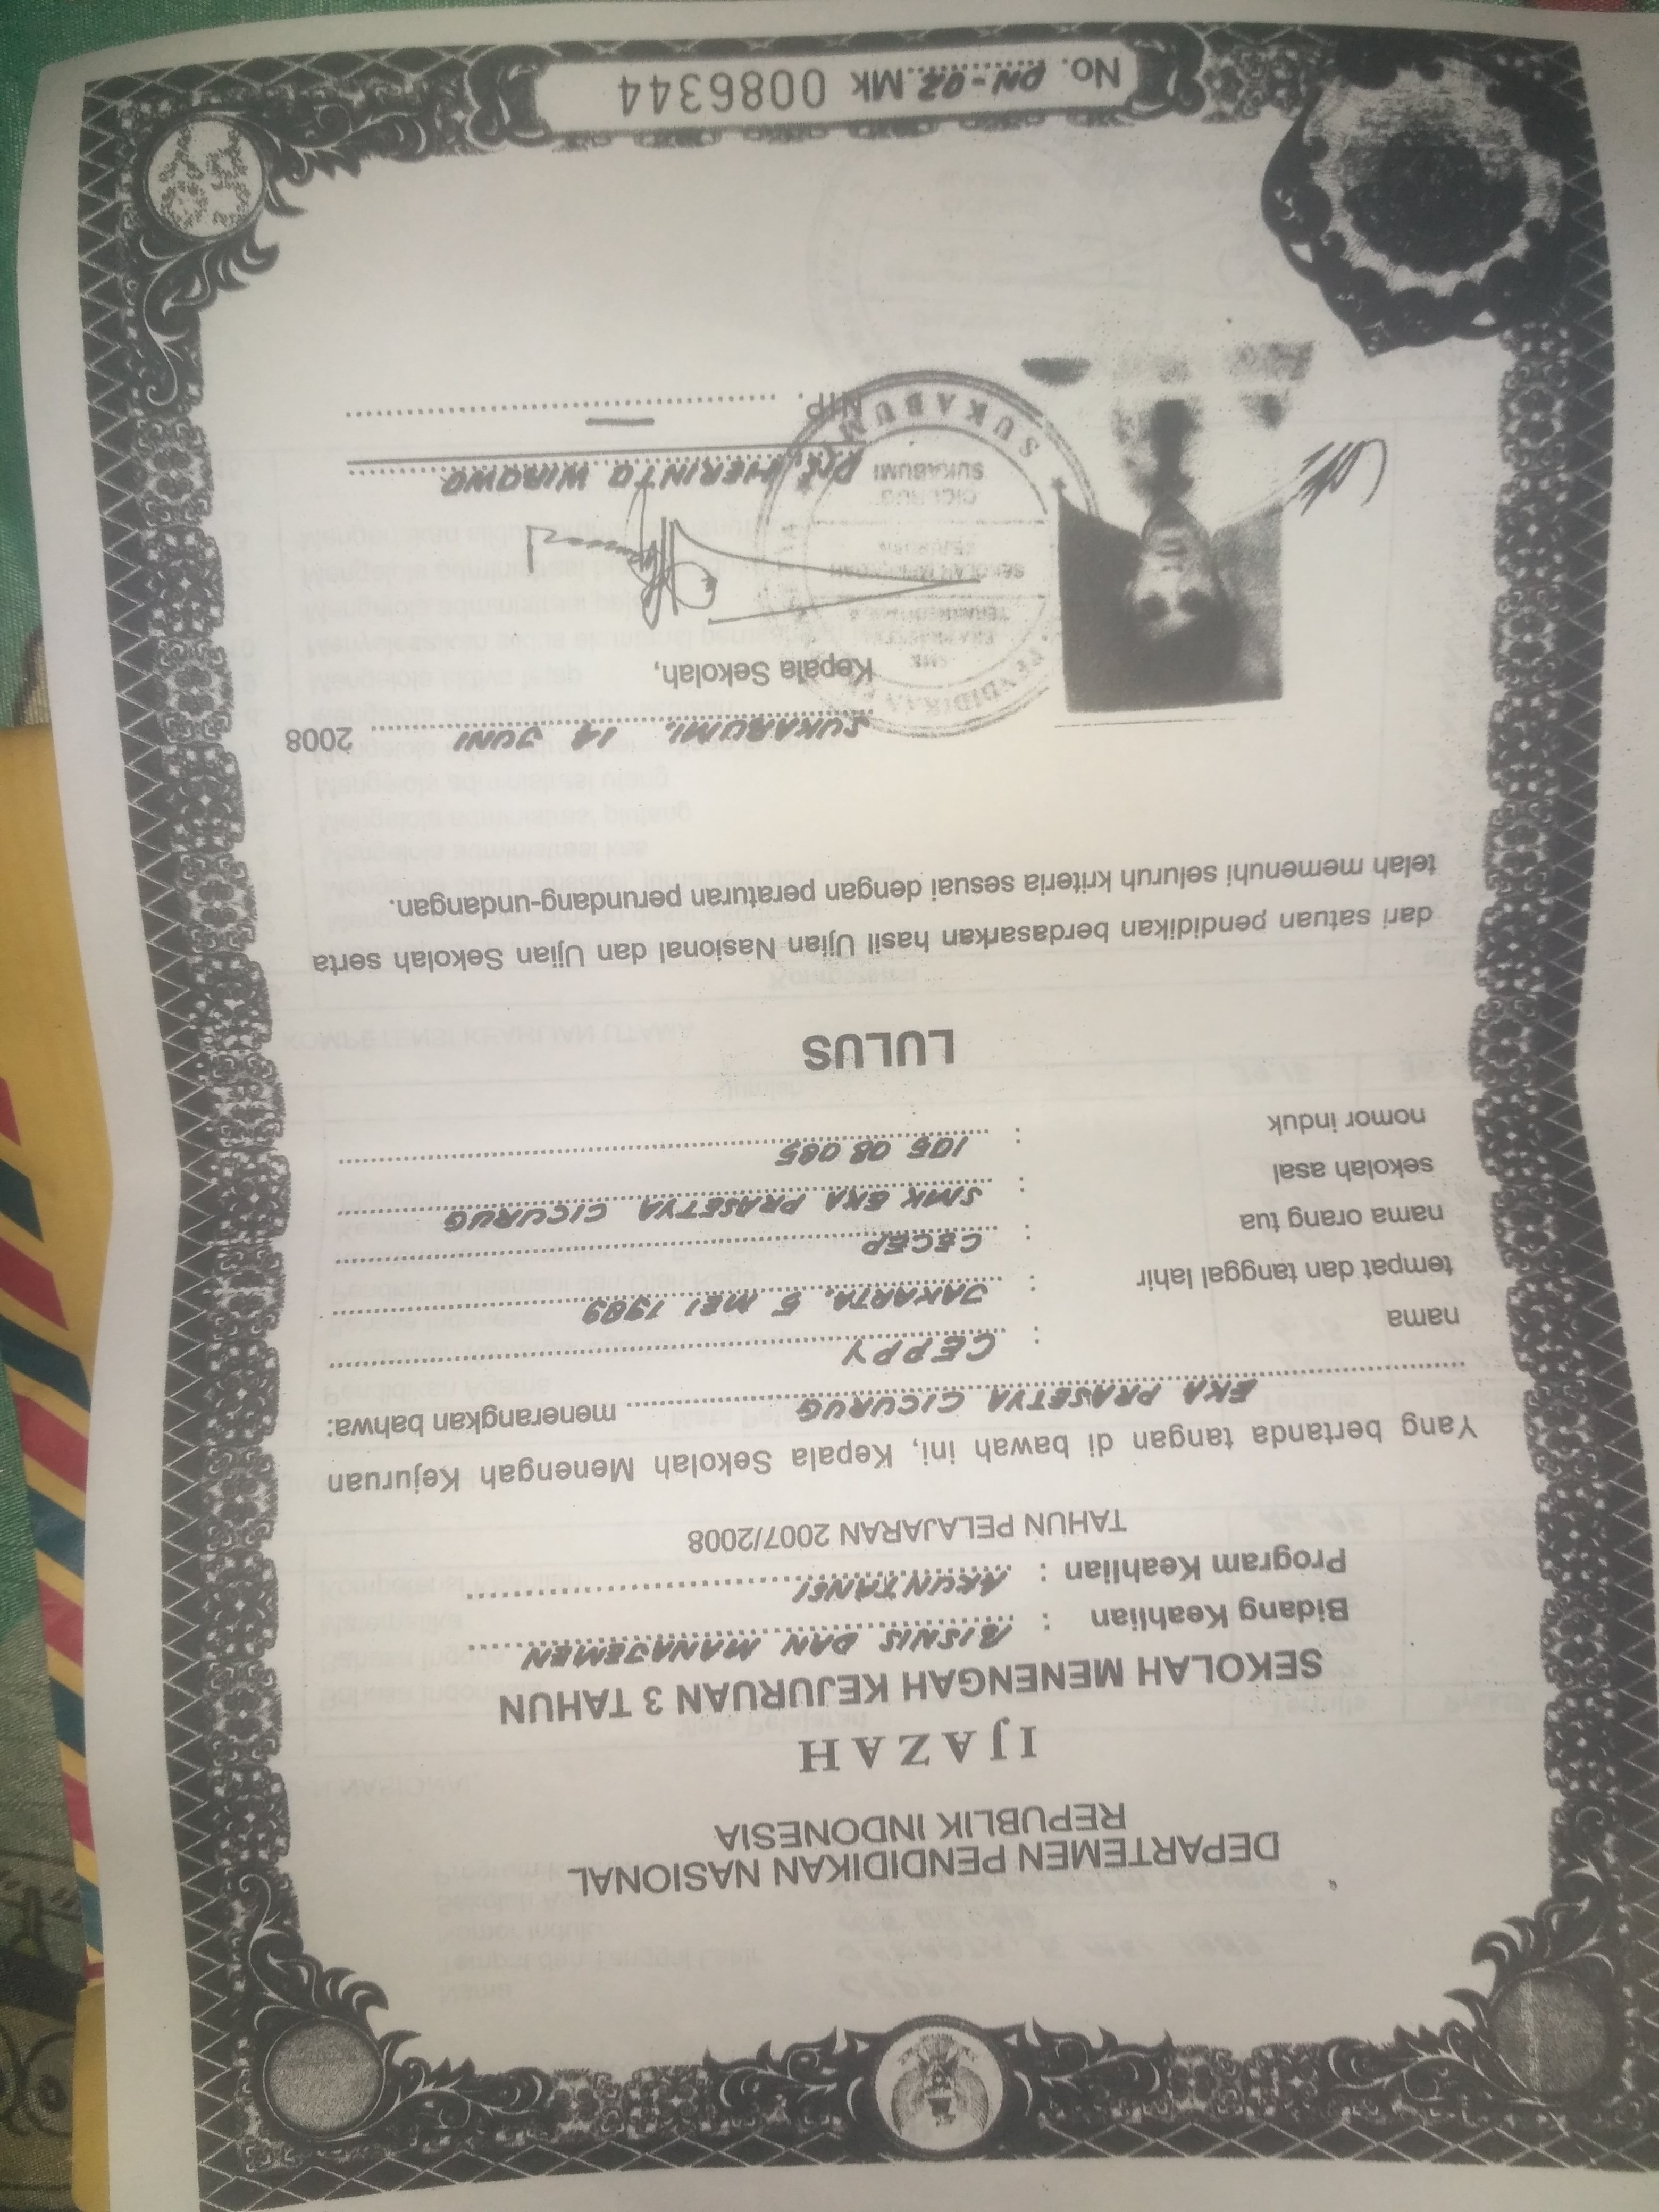 DEPARTEMEN PENDIDIKAN NASIONAL
REPUBLIK INDONESIA
IJAZAH
SEKOLAH MENENGAH KEJURUAN 3 TAHUN
Bidang Keahlian : BISNIS DAN MANAJEMEN
Program Keahlian : AKUNTANSI
TAHUN PELAJARAN 2007/2008
Yang bertanda tangan di bawah ini, Kepala Sekolah Menengah Kejuruan
EKA PRASETYA CICURUG menerangkan bahwa:
nama : CEPPY
tempat dan tanggal lahir : JAKARTA, 5 MEI 1989
nama orang tua : CECEP
sekolah asal : SMK EKA PRASETYA CICURUG
nomor induk : 106 08 085
LULUS
dari satuan pendidikan berdasarkan hasil Ujian Nasional dan Ujian Sekolah serta
telah memenuhi seluruh kriteria sesuai dengan peraturan perundang-undangan.
SUKABUMI, 14 JUNI 2008
Kepala Sekolah,
SEKOLAH MENENGAH
KEJURUAN
CICURUG
SUKABUMI
SUKABUMI
Drs. HERINTO WIROWO
NIP. —
No. DN-02 Mk 0086344